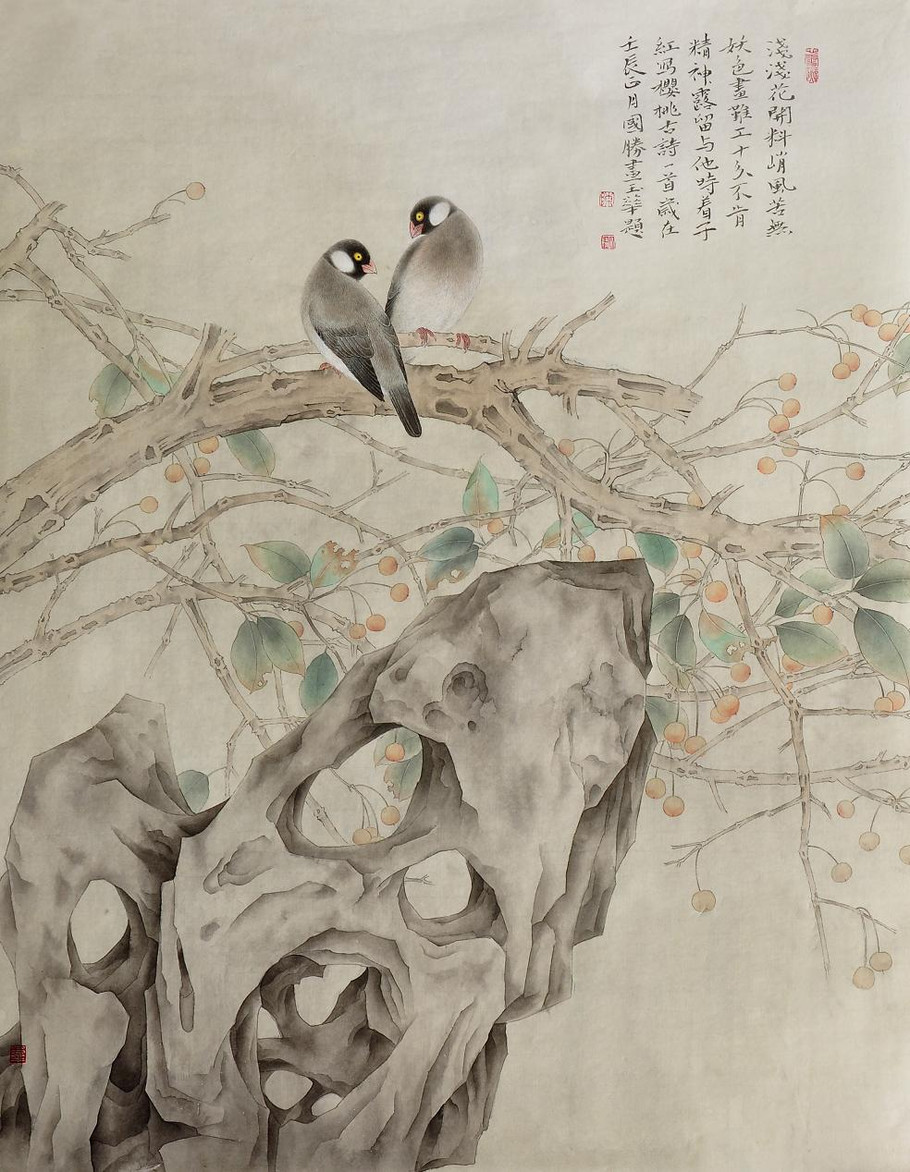 淺淺花開料峭風苦無
妖色畫難工十分不肯
精神露留与他時着子
紅寫櫻桃古詩一首歲在
壬辰正月國勝畫玉華題